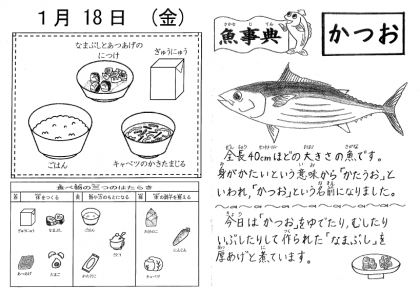 1月18日 (金)
なまぶしとあつあげの
につけ
ぎゅうにゅう
ごはん
キャベツのかきたまじる
食べ物の三つのはたらき
ぎゅうにゅう
なまぶし
ごはん
にんじん
あつあげ
たまご
キャベツ
魚事典
かつお
全長40cmほどの大きさの魚です。
身がかたいという意味から「かたうお」と
いわれ、「かつお」という名前になりました。
今日は「かつお」をゆでたり、むしたり
いぶしたりして作られた「なまぶし」を
厚あげと煮ています。